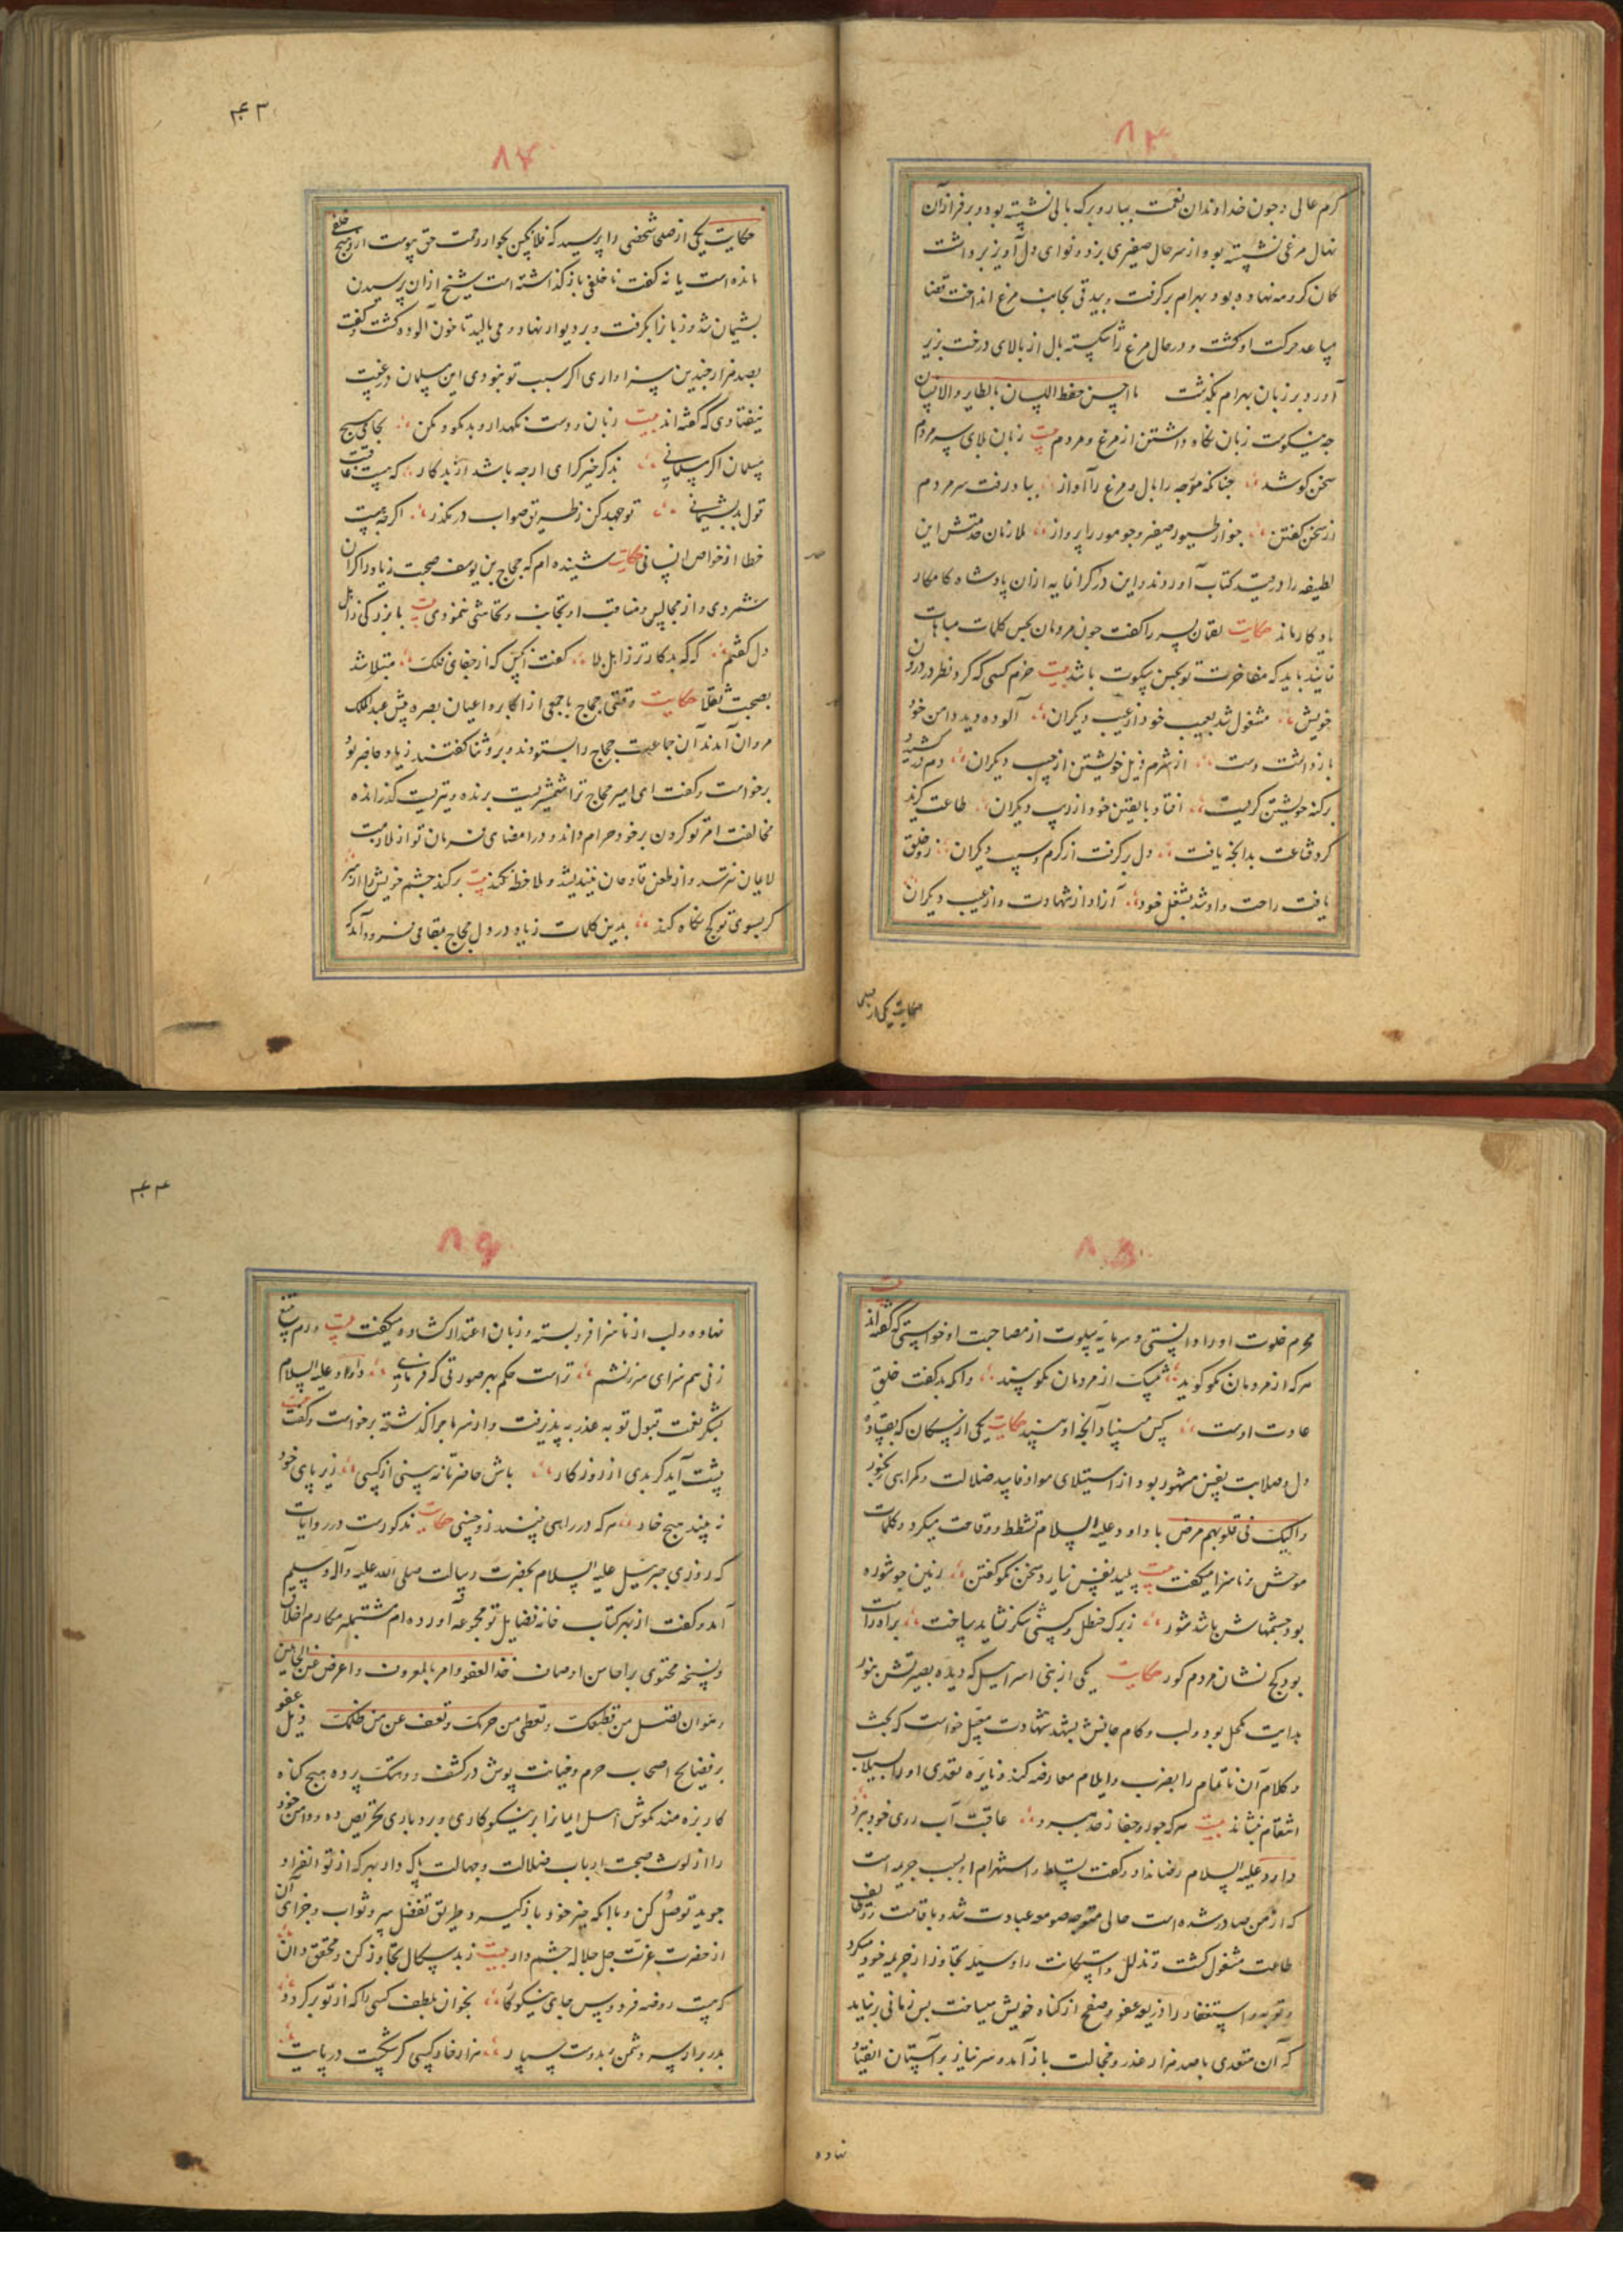 ۸۳
کرم عالی و جون خداوندان نعمت ببار و برک مالی نشسته بود و بر فراز آن
نهال مرغی نشسته بود از سر حال صفیری بزد و نوای دل آویز برداشت
کمان کروهه نهاده بود بهرام برکرفت و بیدقی بجانب مرغ انداخت قضا
مساعد حرکت او کشت و در حال مرغ را شکسته بال از بالای درخت بزیر
آورد بر زبان بهرام بکذشت ما احسن حفظ اللسان بالطایر والانسان
جه نیکوست زبان نکاه داشتن از مرغ و مردم بیت زبان بلای سر مردم
سخن کوشد جنانکه موجه را بال و مرغ را آواز بباد رفت سر مردم
از سخن کفتن جو از طیور صفیر و جو مور را پرواز ملازمان خدمتش این
لطیفه را در قید کتاب آوردند و این در کرانمایه از ان پادشاه کامکار
یادکار ماند حکایت لقمان پسر را کفت جون مردمان بحسن کلمات مباهات
نمایند باید که مفاخرت تو بحسن سکوت باشد بیت خرم کسی که کرد نظر در درون
خویش مشغول شد بعیب خود از عیب دیکران آلوده دید دامن خود
باز داشت دست از شرم ذیل خویشتن از جیب دیکران دم در کشید
بر کنه خویشتن کریست افتاد با یقین خود از ریب دیکران طاعت کزید
کرد قناعت بدانجه یافت دل برکرفت از کرم و سیب دیکران زو خلق
یافت راحت و او شد بشغل خود آزاد از شهادت و از عیب دیکران
حکایت یکی از صلحا
۴۳
۸۴
حکایت یکی از صلحا شخصی را پرسید که فلانکس بجوار رحمت حق پیوست از و هیج خلفی
مانده است یا نه کفت نا خلفی باز کذاشته است شیخ از ان پرسیدن
پشیمان شد و زبانرا بکرفت و بر دیوار نهاد و می مالید تا خون آلوده کشت و کفت
بصد هزار جندین سزاواری اکر سبب تو نبودی این مسلمان در غیبت
نیفتادی که کفته اند بیت زبان ز دست نکهدار و بد مکو و مکن بجای هیج
مسلمان اکر مسلمانی بذکر خیر کرای ارجه باشد از بد کار که هست عاقبت
قول بد پشیمانی تو جهد کن ز طریق صواب در مکذر اکرجه هست
خطا از خواص انسانی حکایت شنیده ام که حجاج بن یوسف صحبت زیاد را کران
شمردی و از مجالس و منافت او تجانب و تحاشی نمودی بیت با بزرکی ز اهل
دل کفتم که که بد کارتر ز اهل بلا کفت آنکس که از جفای فلک مبتلا شد
بصحبت ثقلا حکایت وقتی حجاج با جمعی از اکابر و اعیان بصره پیش عبد الملک
مروان آمدند آن جماعت حجاج را بستودند و برو ثنا کفتند زیاد حاضر بود
برخواست و کفت ای امیر حجاج ترا شمشیریست برنده و تیریست کذرانده
مخالفت امر تو کردن بر خود حرام داند و در امضای فرمان تو از ملامت
لایمان نترسد و از طعن قادحان نیندیشد و ملاحظه نکند بیت برکند جشم خویش را از سر
کر بسوی تو کج نکاه کند بدین کلمات زیاد در دل حجاج مقامی فرود آمد که
۸۵
محرم خلوت او را دانستی و سرمایه سلوت از مصاحبت او خواستی که کفته اند بیت
هر که از مردمان نکو کوید نیک از مردمان نکو بیند وانکه بد کفت خلق
عادت اوست کس مبیناد آنجه او بیند حکایت یکی از نیکان که بقساوت
دل و صلابت نفس مشهور بود از استیلای مواد فاسد ضلالت و کمراهی رنجور
راکیک فی قلوبهم مرض با داود علیه السلام تشطط و وقاحت میکرد و کلمات
موحش و ناسزا میکفت بیت پلید نفس نیارد سخن نکو کفتن زمین جو شوره
بود جشمهاش باشد شور ز برک حنظل و کسنی شکر نشاید ساخت براه راست
بود کج نشان مردم کور حکایت یکی از بنی اسرایل که دیده بصیرتش بنور
هدایت مکحل بود و لب و کام جانش بشهد شهادت معسل خواست که بحث
و کلام آن ناتمام را بضرب و ایلام معارضه کند و نایره تعدی او را بسیلاب
انتقام بنشاند بیت هر که جور و جفا ز حد ببرد عاقبت آب روی خود ببرد
داود علیه السلام رضا نداد و کفت تسلط و استهزام او بسبب جریمه است
که از من صادر شده است حالی متوجه صومعه عبادت شد و باقامت وظایف
طاعت مشغول کشت و تذلل و استکانت را وسیله تجاوز از جریمه خود میکرد
و توبه و استغفار را ذریعه عفو و صفح از کناه خویش میساخت بس زمانی برنیاید
که آن متعدی با صد هزار عذر و خجالت باز آمد و سر نیاز بر آستان انقیاد
نهاده
۴۴
۸۶
نهاده و لب از ناسزا فروبسته و زبان اعتذار کشاده میکفت بیت ورم بتیغ
زنی هم سزای سرزنشم تراست حکم بهر صورتی که فرمایی داود علیه السلام
بشکر نعمت قبول توبه عذر بپذیرفت و از سر ماجرا کذشته برخواست و کفت بیت
پیشت آید کر بدی از روزکار باش حاضر تا نه بینی از کسی زیر پای خود
نه بیند هیج خار هر که در راهی فتد زو خسی حکایت مذکورست در روایات
که روزی جبرئیل علیه السلام بحضرت رسالت صلی الله علیه وآله وسلم
آمد و کفت از بهر کتاب خانه فضایل تو مجموعه آورده ام مشتمله مکارم اخلاق
و نسخه محتوی براحاسن اوصاف خذ العفو وامر بالمعروف واعرض عن الجاهلین
وهو ان تصل من قطعک وتعطی من حرمک وتعف عن من ظلمک ذیل عفو
بر فضایح اصحاب جرم و خیانت پوش در کشف و هتک پرده هیج کناه
کار بزه مند مکوش اهل ایمانرا بر نیکوکاری و بردباری تحریص ده و دامن خود
را از لوث صحبت ارباب ضلالت و جهالت پاک دار بهر که از تو انفراد
جوید توصل کن و با انکه خیر خود باز کیرد طریق تفضل سپر و ثواب و جزای آن
از حضرت عزت جل جلاله جشم دار بیت ز بد سکال تجاوز کن و محقق دان
که هست روضه فردوس جای نیکوکار بخوان بلطف کسی را که از تو برکردد
بدر برار سر دشمن بدوست سپار هزار خار کسی کر شکست در پایت